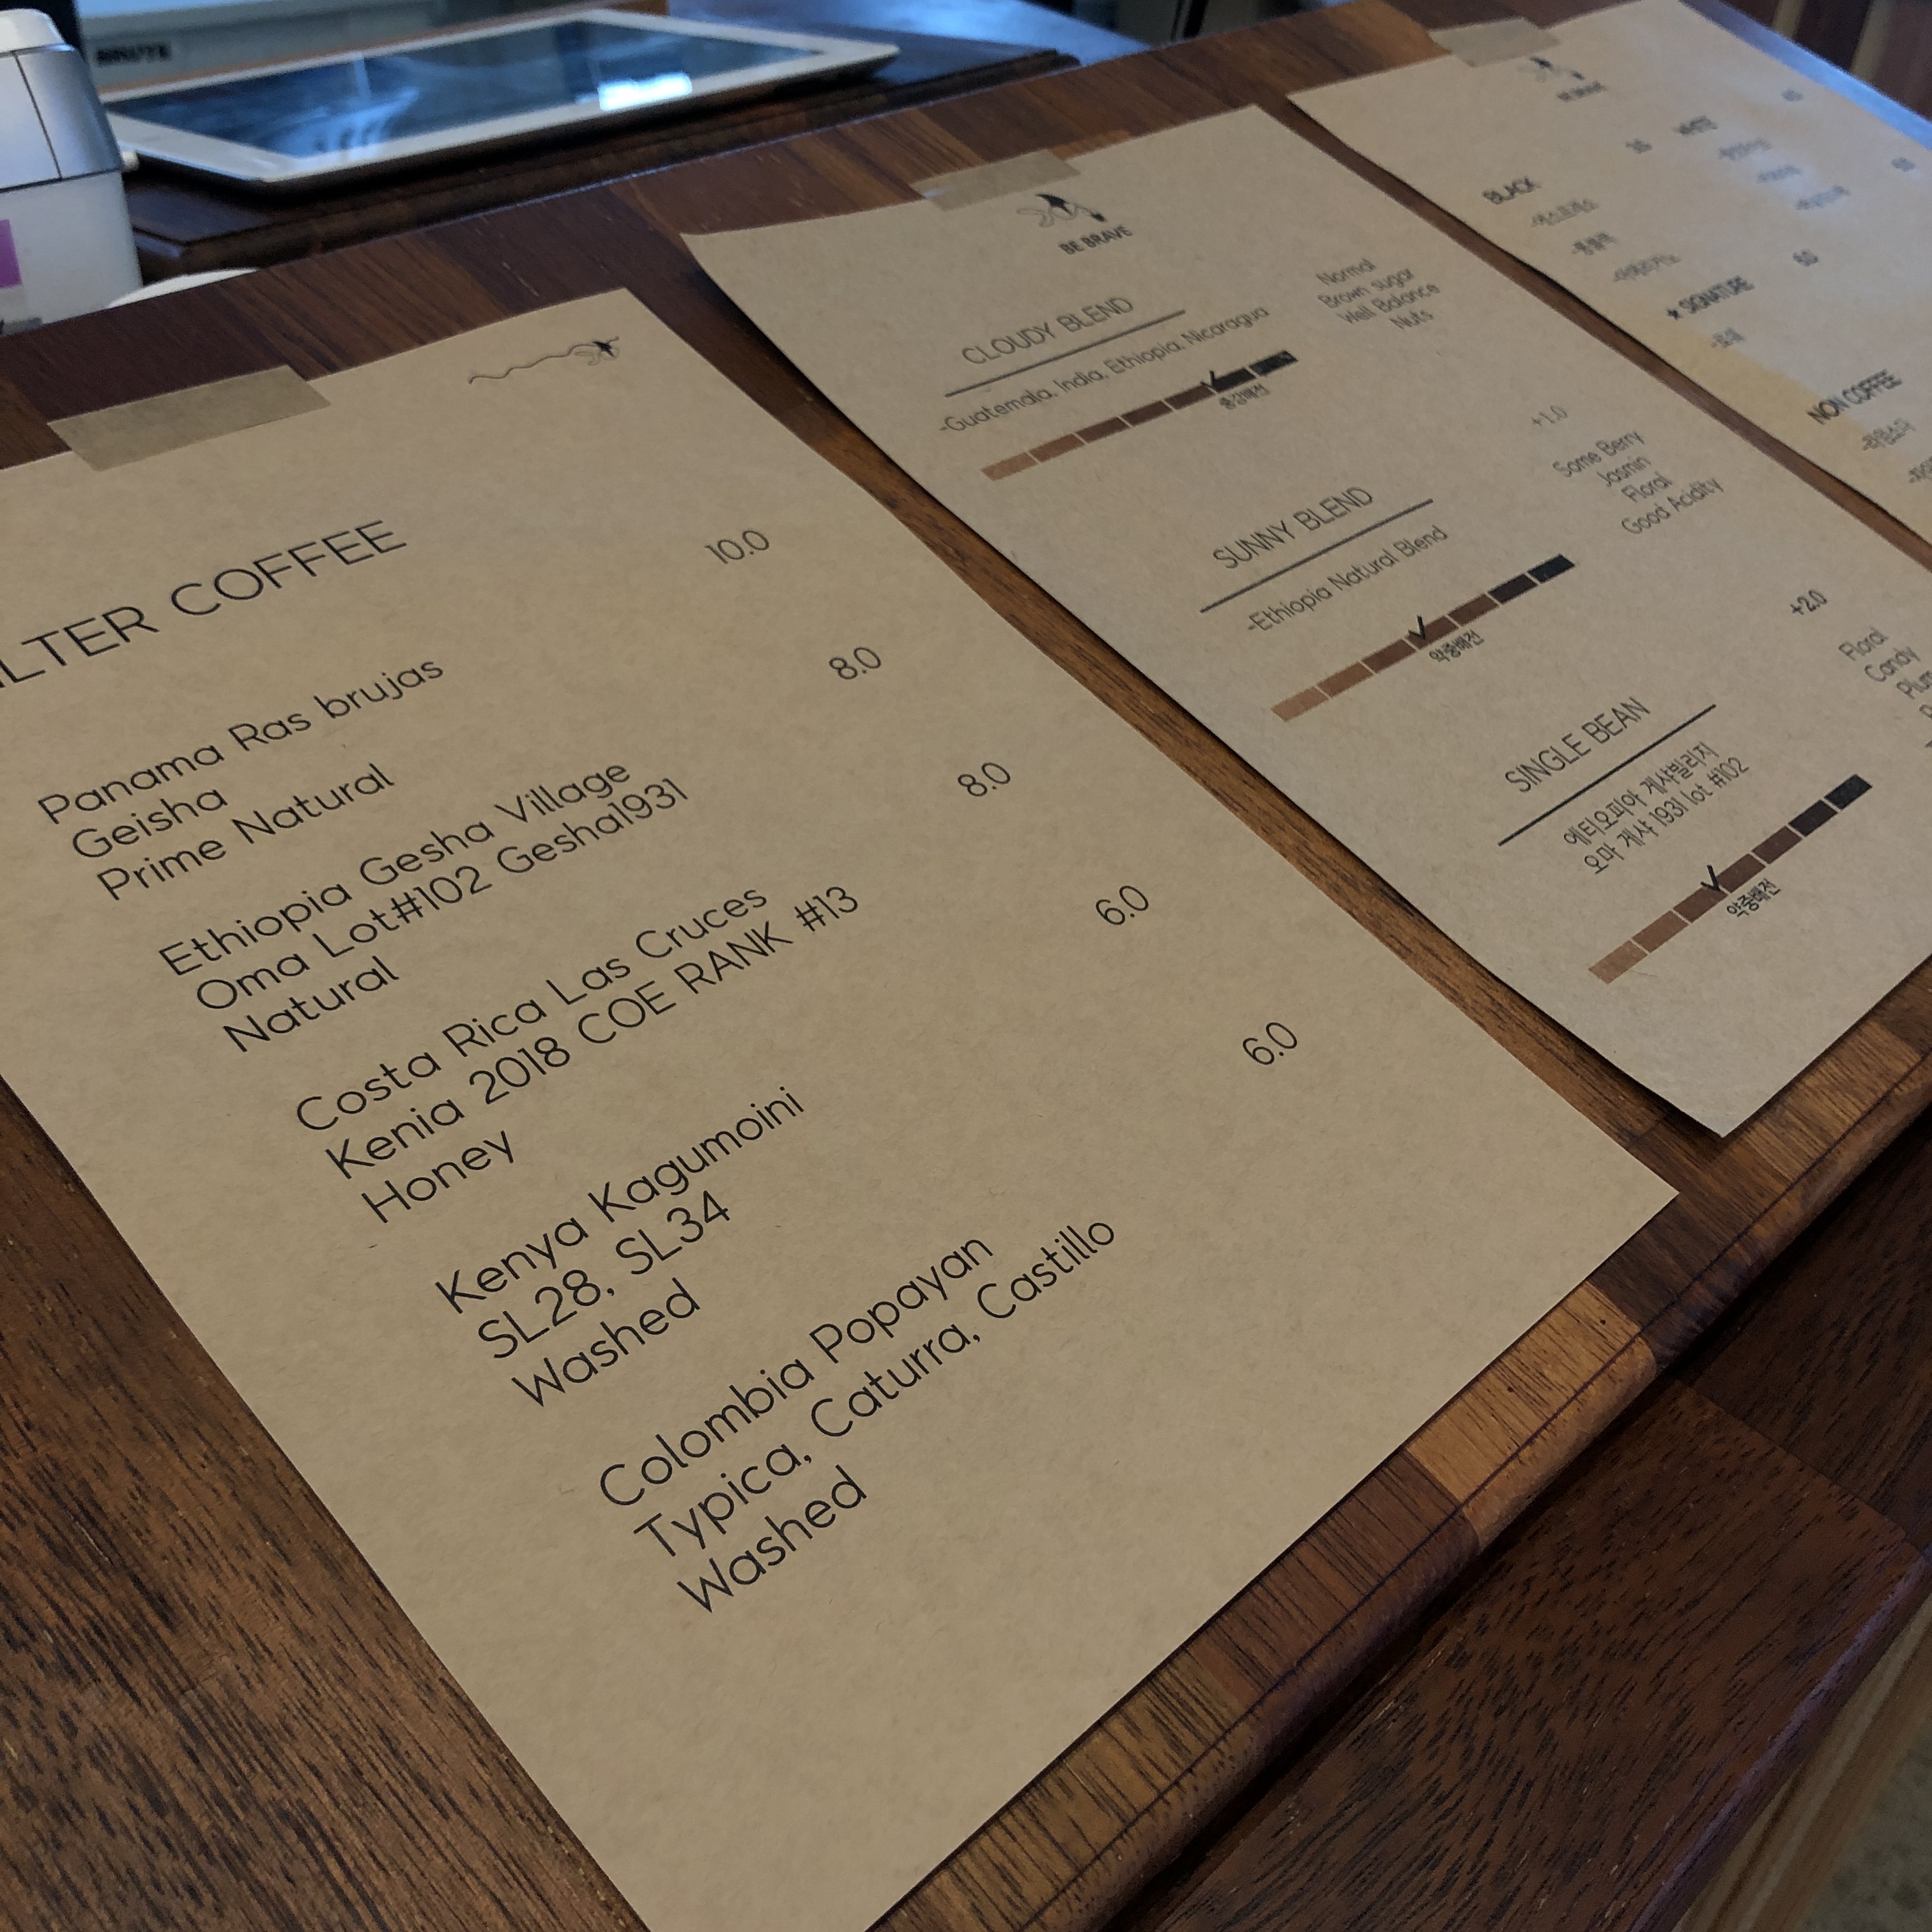 LTER COFFEE
Panama Ras brujas 10.0
Geisha
Prime Natural
Ethiopia Gesha Village 8.0
Oma Lot#102 Gesha1931
Natural
Costa Rica Las Cruces 8.0
Kenia 2018 COE RANK #13
Honey
Kenya Kagumoini 6.0
SL28, SL34
Washed
Colombia Popayan 6.0
Typica, Caturra, Castillo
Washed
BE BRAVE
CLOUDY BLEND
-Guatemala, India, Ethiopia, Nicaragua
중강배전
Normal
Brown sugar
Well Balance
Nuts
SUNNY BLEND +1.0
-Ethiopia Natural Blend
약중배전
Some Berry
Jasmin
Floral
Good Acidity
SINGLE BEAN +2.0
에티오피아 게샤빌리지
오마 게샤 1931 lot #102
약중배전
Floral
Candy
BE BRAVE
BLACK
WHITE
★ SIGNATURE 6.0
NON COFFEE